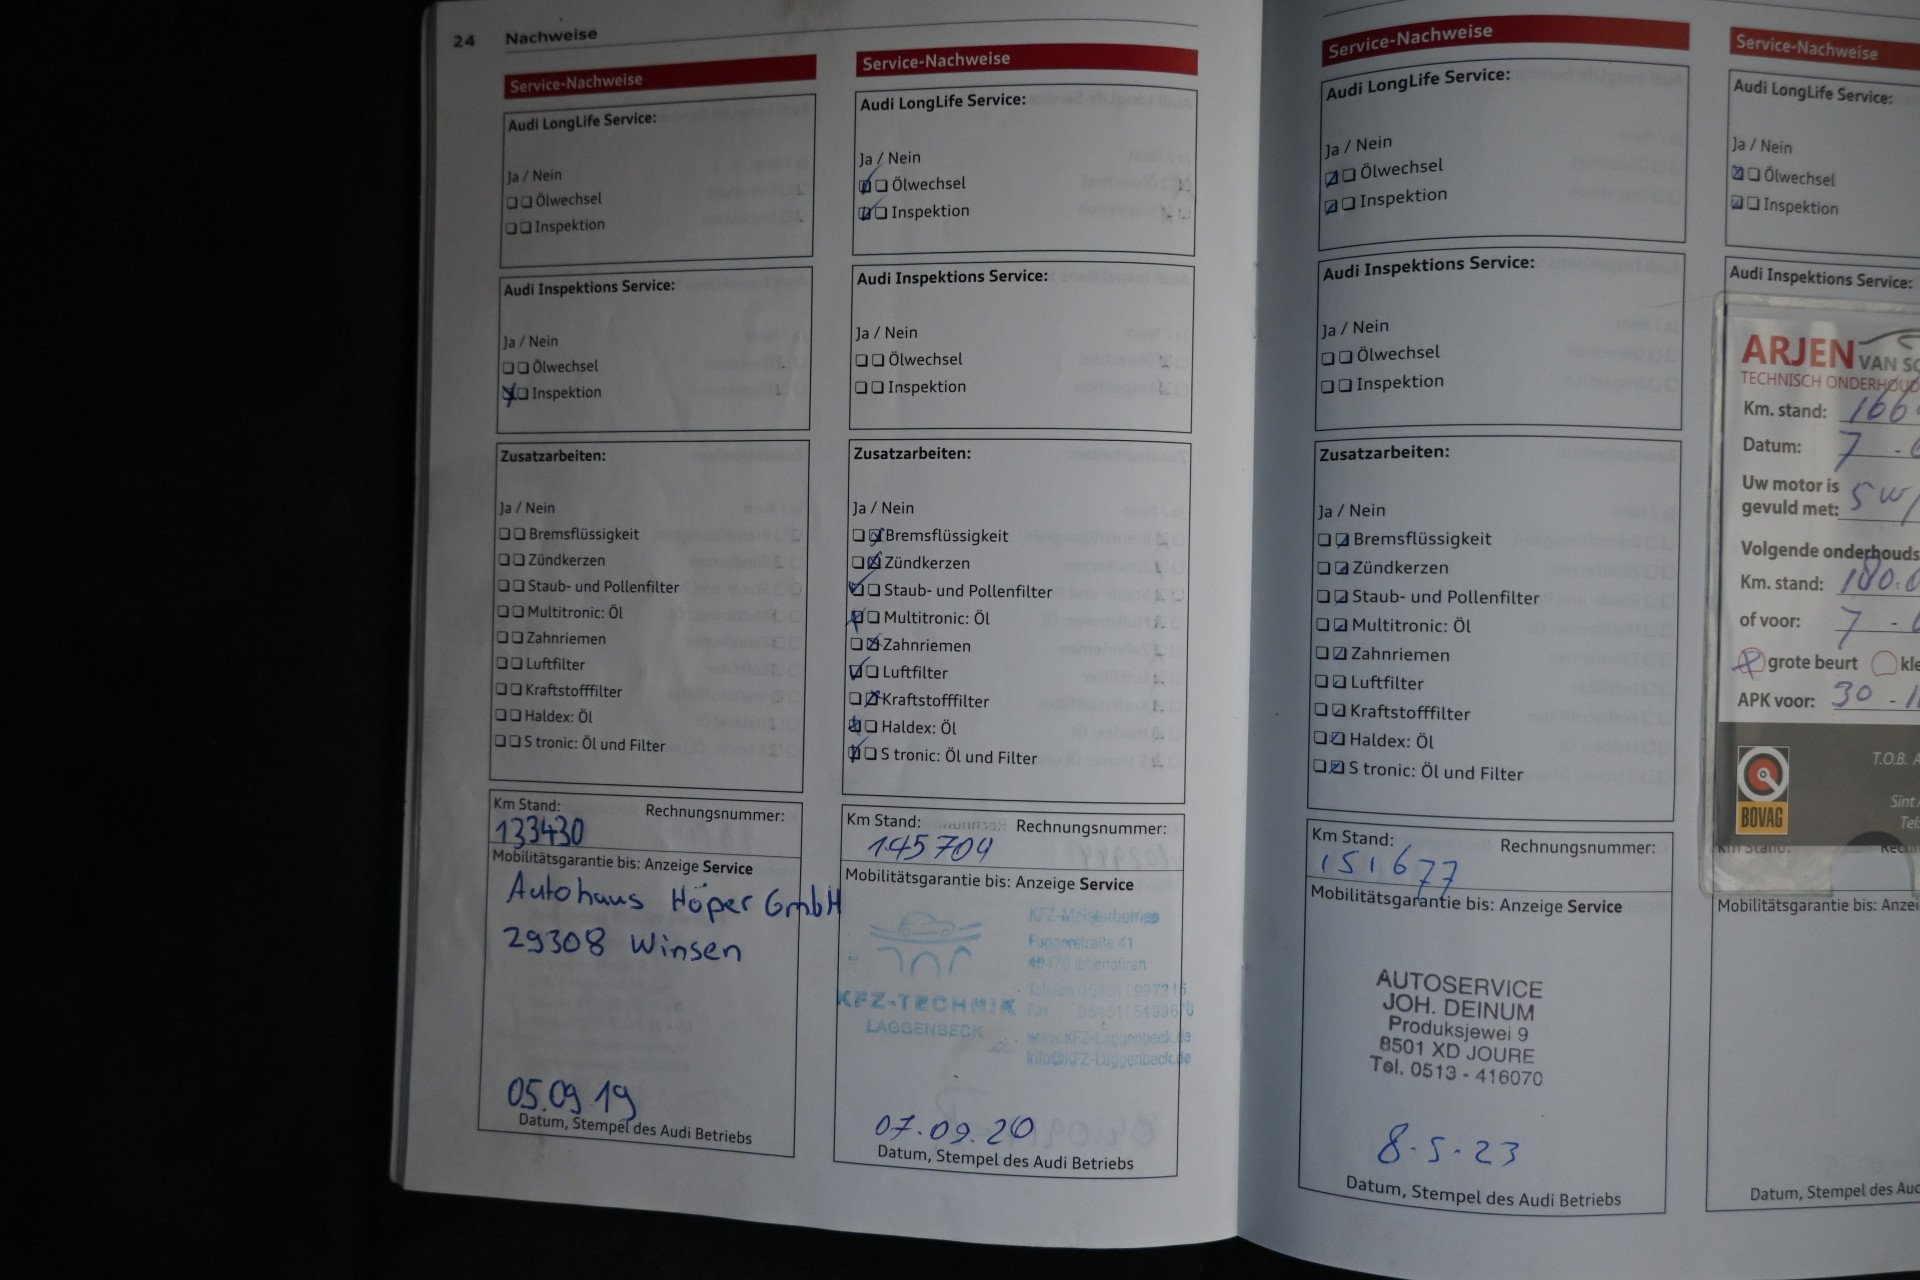 24 Nachweise
Service-Nachweise
Audi LongLife Service:
Ja / Nein
Ölwechsel
Inspektion
Audi Inspektions Service:
Ja / Nein
Ölwechsel
Inspektion
Zusatzarbeiten:
Ja / Nein
Bremsflüssigkeit
Zündkerzen
Staub- und Pollenfilter
Multitronic: Öl
Zahnriemen
Luftfilter
Kraftstofffilter
Haldex: Öl
S tronic: Öl und Filter
Km Stand: Rechnungsnummer:
133430
Mobilitätsgarantie bis: Anzeige Service
Autohaus Höper GmbH
29308 Winsen
05.09.19
Datum, Stempel des Audi Betriebs
Service-Nachweise
Audi LongLife Service:
Ja / Nein
Ölwechsel
Inspektion
Audi Inspektions Service:
Ja / Nein
Ölwechsel
Inspektion
Zusatzarbeiten:
Ja / Nein
Bremsflüssigkeit
Zündkerzen
Staub- und Pollenfilter
Multitronic: Öl
Zahnriemen
Luftfilter
Kraftstofffilter
Haldex: Öl
S tronic: Öl und Filter
Km Stand: Rechnungsnummer:
145704
Mobilitätsgarantie bis: Anzeige Service
KFZ-Meisterbetrieb
Fuggerstraße 41
KFZ-TECHNIK
LAGGENBECK
Telefon
Fax
www.KFZ-Laggenbeck.de
Info@KFZ-Laggenbeck.de
07.09.20
Datum, Stempel des Audi Betriebs
Service-Nachweise
Audi LongLife Service:
Ja / Nein
Ölwechsel
Inspektion
Audi Inspektions Service:
Ja / Nein
Ölwechsel
Inspektion
Zusatzarbeiten:
Ja / Nein
Bremsflüssigkeit
Zündkerzen
Staub- und Pollenfilter
Multitronic: Öl
Zahnriemen
Luftfilter
Kraftstofffilter
Haldex: Öl
S tronic: Öl und Filter
Km Stand: Rechnungsnummer:
151677
Mobilitätsgarantie bis: Anzeige Service
AUTOSERVICE
JOH. DEINUM
Produksjewei 9
8501 XD JOURE
Tel. 0513 - 416070
8-5-23
Datum, Stempel des Audi Betriebs
Service-Nachweise
Audi LongLife Service:
Ja / Nein
Ölwechsel
Inspektion
Audi Inspektions Service:
ARJEN VAN
TECHNISCH ONDERHOUD
Km. stand: 166
Datum: 7 -
Uw motor is
gevuld met: 5W/
Volgende onderhouds
Km. stand: 180.0
of voor: 7 -
grote beurt
APK voor: 30 -
T.O.B.
Sint
BOVAG
Km Stand:
Mobilitätsgarantie bis:
Datum, Stempel des